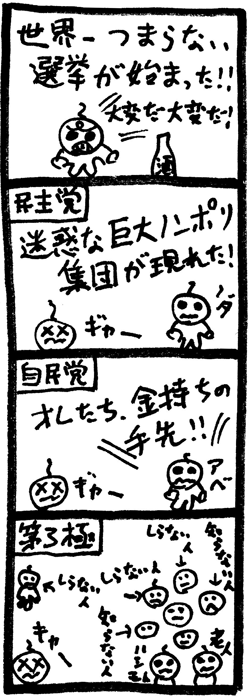 世界一つまらない
選挙が始まった!!
大変だ大変だ!
酒
民主党
迷惑な巨大ノンポリ
集団が現れた!
ノダ
ギャー
自民党
オレたち、金持ちの
手先!!
アベ
ギャー
第3極
しらない人
知らない人
しらない人
しらない人
知らない人
ギャー
ハシモト
老人